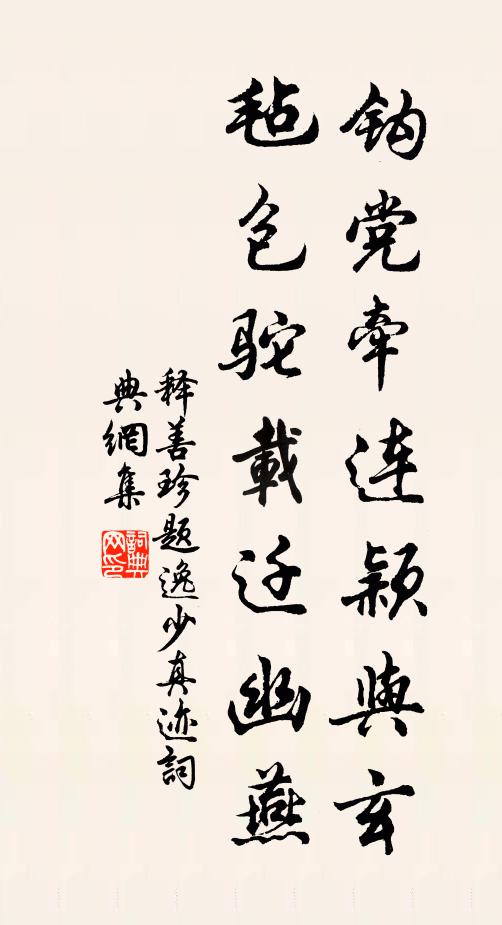 钩党牵连颖與玄
毡包驼載迁幽燕
释善珍题逸少真迹詞
典網集
詞典网印